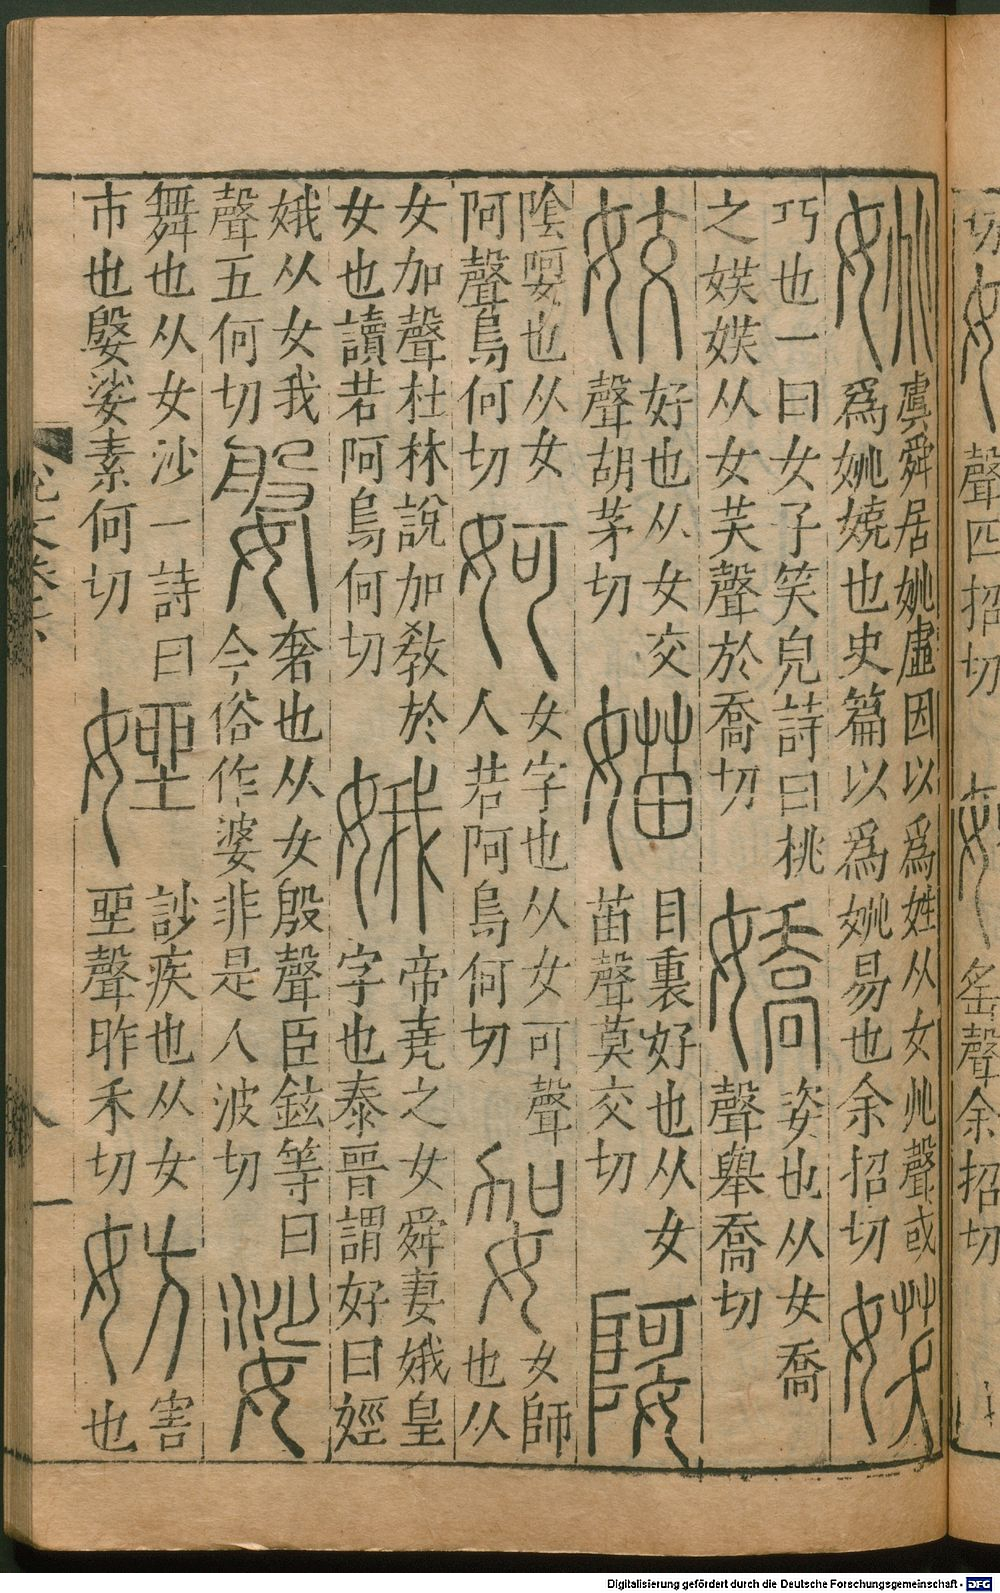 切
聲四招切
䍃聲余招切
姚
虞舜居姚虛因以爲姓从女兆聲或
爲姚嬈也史篇以爲姚易也余招切
媄
巧也一曰女子笑皃詩曰桃
之媄媄从女芺聲於喬切
嬌
姿也从女喬
聲舉喬切
姣
好也从女交
聲胡茅切
媌
目裏好也从女
苗聲莫交切
娿
陰娿也从女
阿聲烏何切
妸
女字也从女可聲
人若阿烏何切
㚙
女師
也从
女加聲杜林說加敎於
女也讀若阿烏何切
娥
帝堯之女舜妻娥皇
字也泰晉謂好曰娙
娥从女我
聲五何切
媻
奢也从女殷聲臣鉉等曰
今俗作婆非是人波切
娑
舞也从女沙一詩曰
市也媻娑素何切
㛗
訬疾也从女
聲昨禾切
妨
害
也
Digitalisierung gefördert durch die Deutsche Forschungsgemeinschaft - DFG